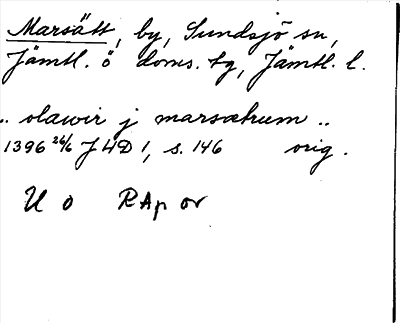 Marsätt, by, Sundsjö sn,
Jämtl. ö doms. tg, Jämtl. l.
.. olawir j marsætrum ..
1396 26/6 J H D 1, s. 146 orig.
U o RAp or